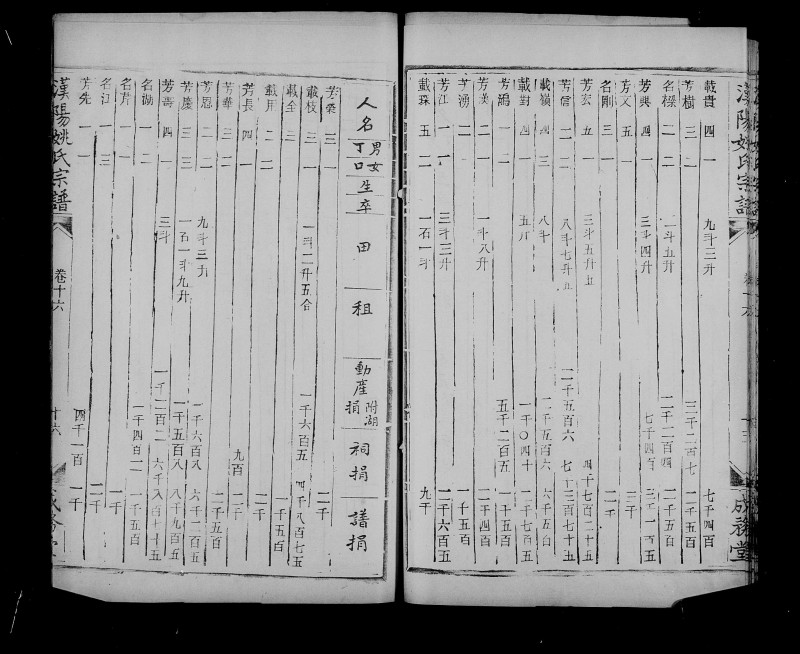 載貴 四 一 九斗三升 七千四百
芳橫 三 二 三千二百七 一千五百
名標 二 二 二斗五升 二千二百四 二千五百
芳興 四 一 三斗四升 七千四百 三千一百五
芳文 五 一 三千
名剛 三 一 二千
芳宏 五 一 三斗五升五 四千七百二十五
芳信 二 二 八斗七升五 二千五百六 七千三百七十五
載嶺 四 三 八斗 二千五百六 六千五百
載對 四 一 五升 一千〇四十 二千七百五
芳鴻 二 一 五千二百五 一千五百
芳漢 二 一 一斗八升 二千四百
芳湧 二 一 一千五百
芳江 一 一 三斗三升 二千六百五
載珠 五 二 一石一斗 九千
漢陽姚氏宗譜
成務堂
人名 男丁 女口 生 卒 田 租 動產 附湖捐 祠捐 譜捐
芳榮 三 一 二千
載枝 三 一 一斗二升五合 一千六百五 四千八百七五
載全 三 二 一千五百
載用 二 二 二千
芳長 四 一 九百 二千
芳華 三 二 二千五百
芳恩 二 二 九斗三升 一千六百八 六千二百五
芳慶 三 三 一石一斗九升 一千五百八 八千九百五
芳壽 四 一 三斗 一千二百二 六千八百十五
名湖 一 二 一千四百二 一千五百
名芹 一 一 一千
名江 一 三 二千
芳先 一 一 四千一百 一千
漢陽姚氏宗譜
卷十六
十六